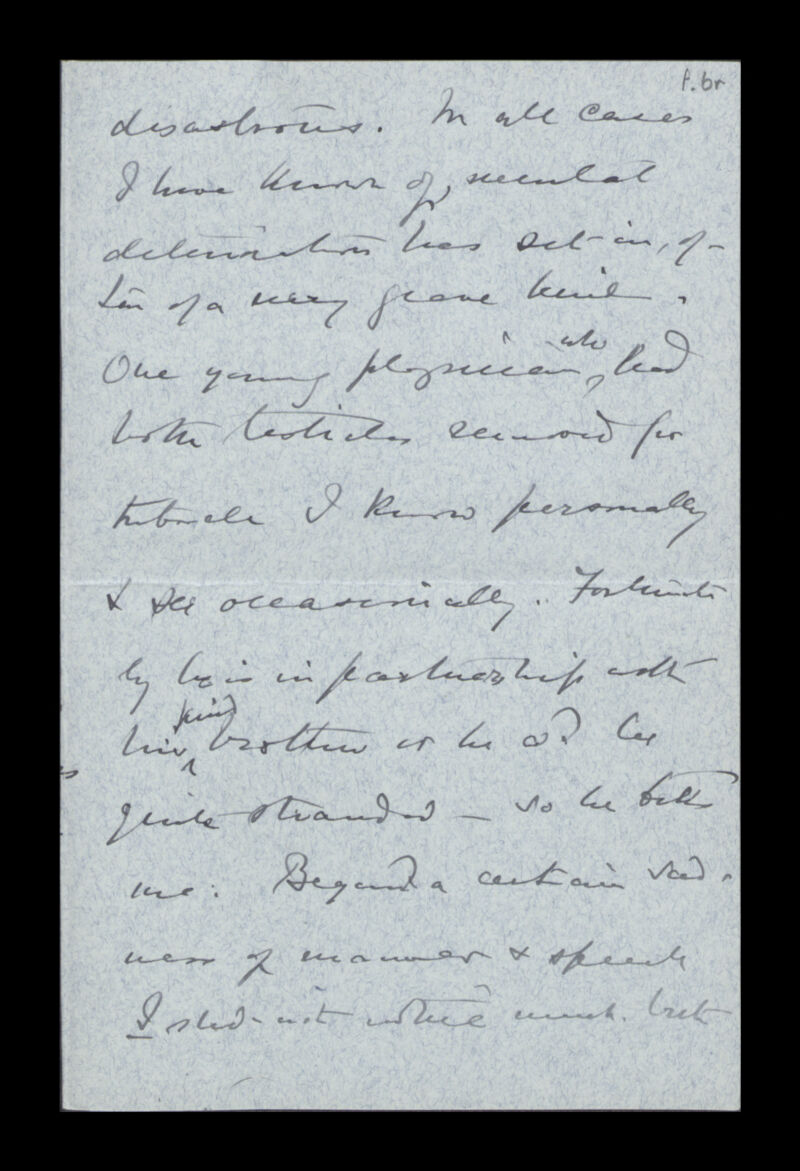 f. 6r
disastrous. In all cases
I have known of, mental
deterioration has set in, of-
ten of a very grave kind.
One young physician who had
both testicles removed for
tubercle I know personally
& see occasionally. Fortunate
ly he is in partnership with
his kind brother or he wd be
quite stranded — so he tells
me. Beyond a certain sad-
ness of manner & speech
I shd not notice much. but